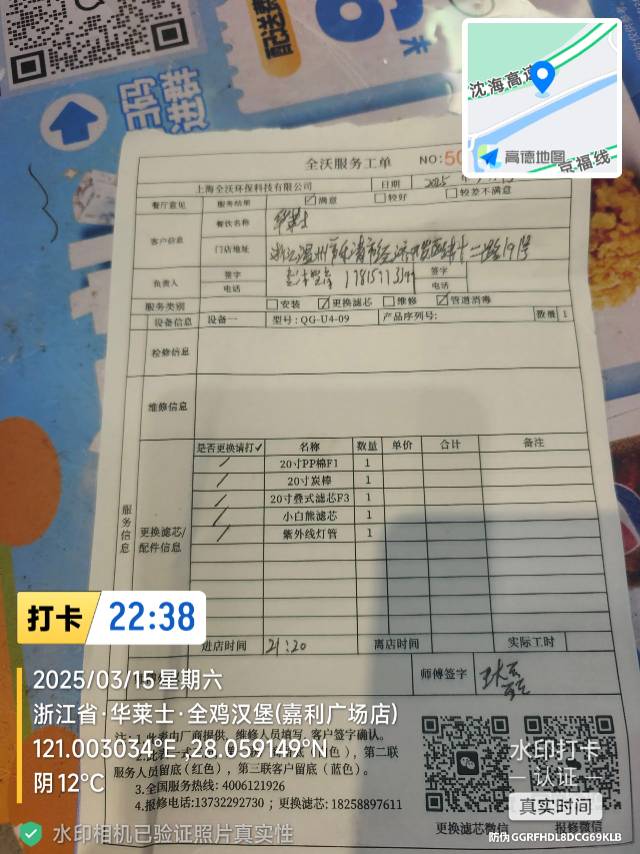 配送费
6
天
扫码
进群
沈海高速
高德地图
京福线
全沃服务工单
NO:50
上海全沃环保科技有限公司
日期
2025
餐厅意见
服务结果
满意
较好
较差不满意
客户信息
餐饮名称
华莱士
门店地址
浙江温州市乐清市经济开发区纬十二路19号
负责人
签字
电话
签字
电话
服务类别
安装
更换滤芯
维修
管道消毒
设备信息
设备一
型号:QG-U4-09
产品序列号:
数量
1
检修信息
维修信息
服务信息
更换滤芯/
配件信息
是否更换请打✓
名称
数量
单价
合计
备注
20寸PP棉F1
1
20寸炭棒
1
20寸叠式滤芯F3
1
小白熊滤芯
1
紫外线灯管
1
进店时间
21:20
离店时间
实际工时
师傅签字
注:1.此表由厂商提供,维修人员填写,客户签字确认。
服务人员留底(红色),第三联客户留底(蓝色)。
3.全国服务热线:4006121926
4.报修电话:13732292730;更换滤芯:18258897611
更换滤芯微信
报修微信
打卡
22:38
2025/03/15 星期六
浙江省·华莱士·全鸡汉堡(嘉利广场店)
121.003034°E ,28.059149°N
阴 12°C
水印相机已验证照片真实性
水印打卡
认证
真实时间
防伪 GGRFHDL8DCG69KLB